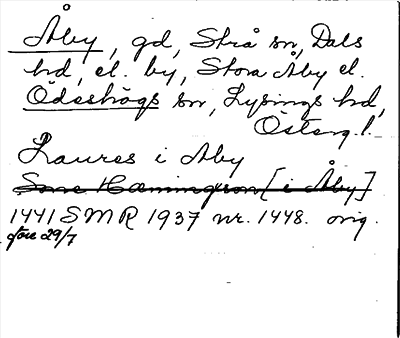 Åby, gd, Strå sn, Dals
hd, el. by, Stora Åby el.
Ödeshögs sn, Lysings hd,
Österg. l.
Laures i Aby
Sone Hemmingsson [i Åby]
1441 SMR 1937 nr. 1448. orig.
före 29/7